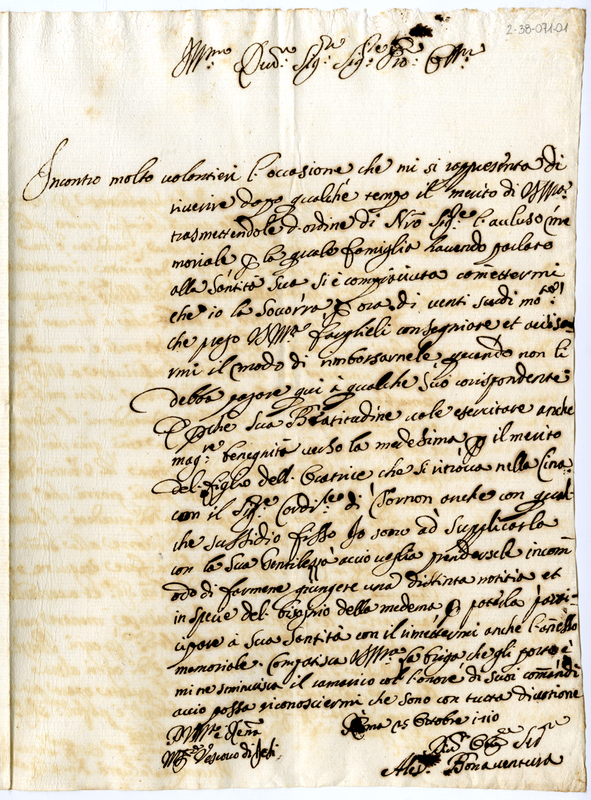 2-38-071-01
Ill.mo Sig.r Sig.r Pro.
Incontro molto volontieri l'occasione che mi si rappresenta di
riverire dopo qualche tempo il merito di VS Ill.ma
trasmettendole d'ordine di Nro Sig.re l'accluso me
moriale p la quale famiglia havendo parlato
alla Santità Sua si è compiaciuta comettermi
che io la socorra p ora di venti scudi mo.ta
che prego VS Ill.ma farglieli consegniare et avisa
rmi il modo di rimborsarnele quando non li
debba pagare qui à qualche suo corispondente:
E perche Sua Beatitudine vole esercitare anche
mag.re benegnità verso la medesima p il merito
del figlio dell'Oratrice che si ritrova nella Cina
con il Sig.r Cardi.le di Tornon anche con qual
che sussidio fisso Io sono ad supplicarla
con la Sua Gentilezza accio veglia prendersela incom
odo di farmene giungere una distinta notitia et
in specie del bisognio della medema p poterla parti-
cipare à Sua Santità con il rimettermi anche l'annesso
memoriale. Compatisca VS Ill.ma la briga che gli porto e
mi ne sminuisca il ramarico col l'onore di suoi comandi
accio possa riconoscermi che sono con tutta divotione
D VS Ill.ma e Re.ma
Roma 25 Ottobre 1710
M.r Vescovo di Jesi.
Ser
Ales. Bonaventura